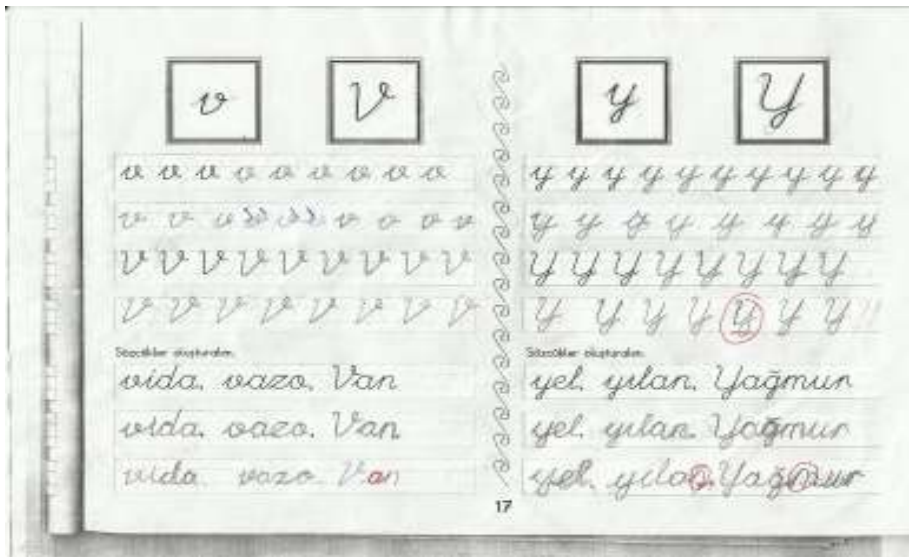 v V
v v v v v v v v v v
v v v v v v v
V V V V V V V V V
V V V V V V V V
Sözcükler oluşturalım.
vida, vazo, Van
vida, vazo, Van
vida vazo Van
y Y
y y y y y y y y y y
y y y y y y y y
Y Y Y Y Y Y Y Y
Y Y Y Y Y Y Y
Sözcükler oluşturalım.
yel, yılan, Yağmur
yel, yılan, Yağmur
yel, yılan, Yağmur
17